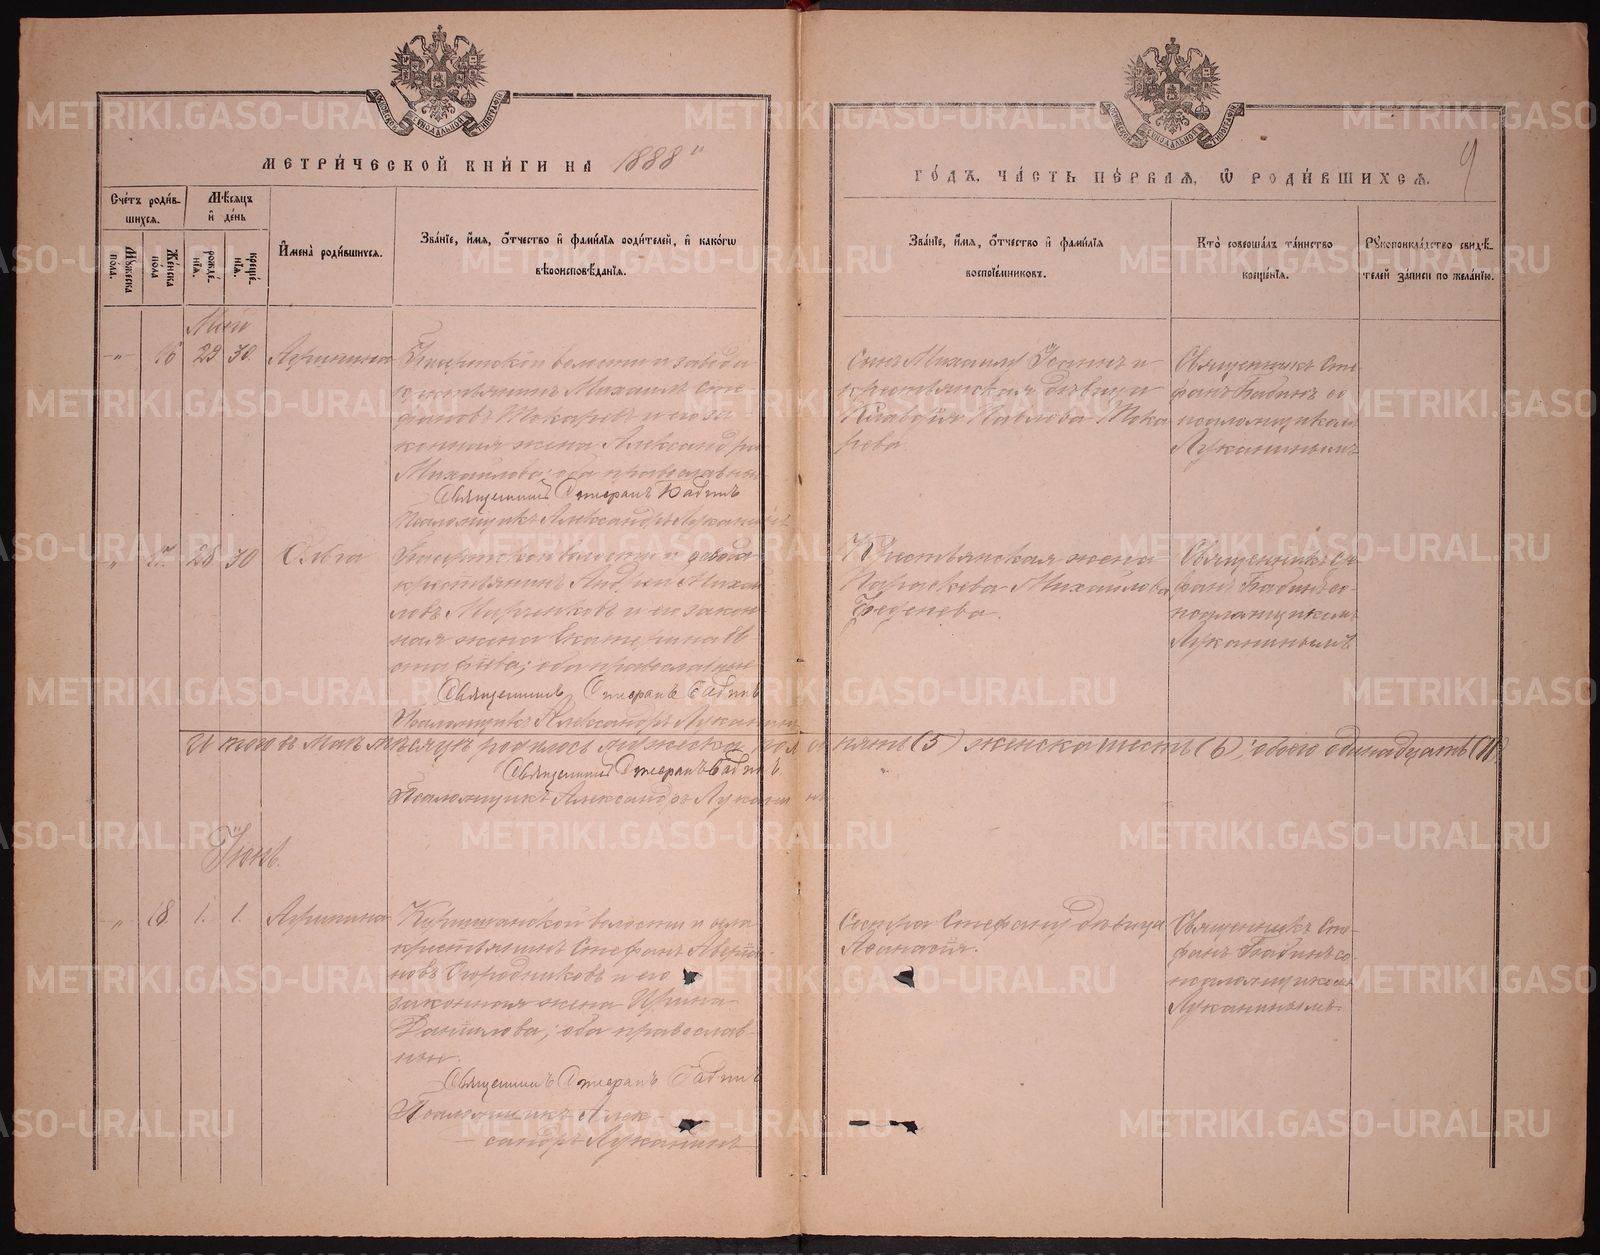 МЕТРИ́ЧЕСКОЙ КНИ́ГИ НА 1888"
ГО́ДЪ, ЧА́СТЬ ПЕ́РВАЯ, Ѿ РОДИ́ВШИХСЯ.
9
Сче́тъ роди́в-
шихся.
Мѣ́сяцъ
и҆ де́нь
Мꙋ́жеска
по́ла.
Же́нска
по́ла
рожде́-
нїѧ.
креще́-
нїѧ.
И҆мена̀ роди́вшихся.
Зва́нїе, и҆́мя, о҆́тчество и҆ фами́лїя роди́телей, и҆ како́гѡ
вѣроисповѣ́данїя.
Зва́нїе, и҆́мя, о҆́тчество и҆ фами́лїя
воспрїе́мниковъ.
Кто̀ соверша́лъ та́инство
креще́нїя.
Рꙋкоприкла́дство свидѣ́-
телей за́писи по жела́нїю.
Май
-"- 16 29 30. Агрипина
волости и завода
крестьянинъ Михаилъ Сте
фановъ Токаревъ и его за
конная жена Александра
Михайлова; оба православны
Священникъ Стефанъ Бабинъ
Псаломщикъ Александръ Луканинъ
сынъ Михаилъ и
крестьянская дѣвица
Клавдія Павлова Тока
рева.
Священникъ Сте
фанъ Бабинъ съ
псаломщикомъ
Луканинымъ
" 17. 28 30 Ольга
волости и завода
крестьянинъ Андрей Михай
ловъ и его закон
ная жена Екатерина
оба православные
Священникъ Стефанъ Бабинъ
Псаломщикъ Александръ Луканинъ
Крестьянская жена
Параскева Михайлова
Священникъ Сте
фанъ Бабинъ со
псаломщикомъ
Луканинымъ
Итого въ Маѣ мѣсяцѣ родилось мужеска пола пять (5) женска шесть (6); обоего одинадцать (11)
Священникъ Стефанъ Бабинъ.
Псаломщикъ Александръ Луканинъ
Іюнь.
" 18. 1. 1. Агрипина
волости и села
крестьянинъ Стефанъ
новъ Огородниковъ и его
законная жена Ирина
Данилова; оба православ-
ные.
Священникъ Стефанъ Бабинъ
Псаломщикъ Алек-
сандръ Луканинъ
Сестра Стефану дѣвица
Аѳанасія.
Священникъ Сте-
фанъ Бабинъ со
псаломщикомъ
Луканинымъ.
METRIKI.GASO-URAL.RU